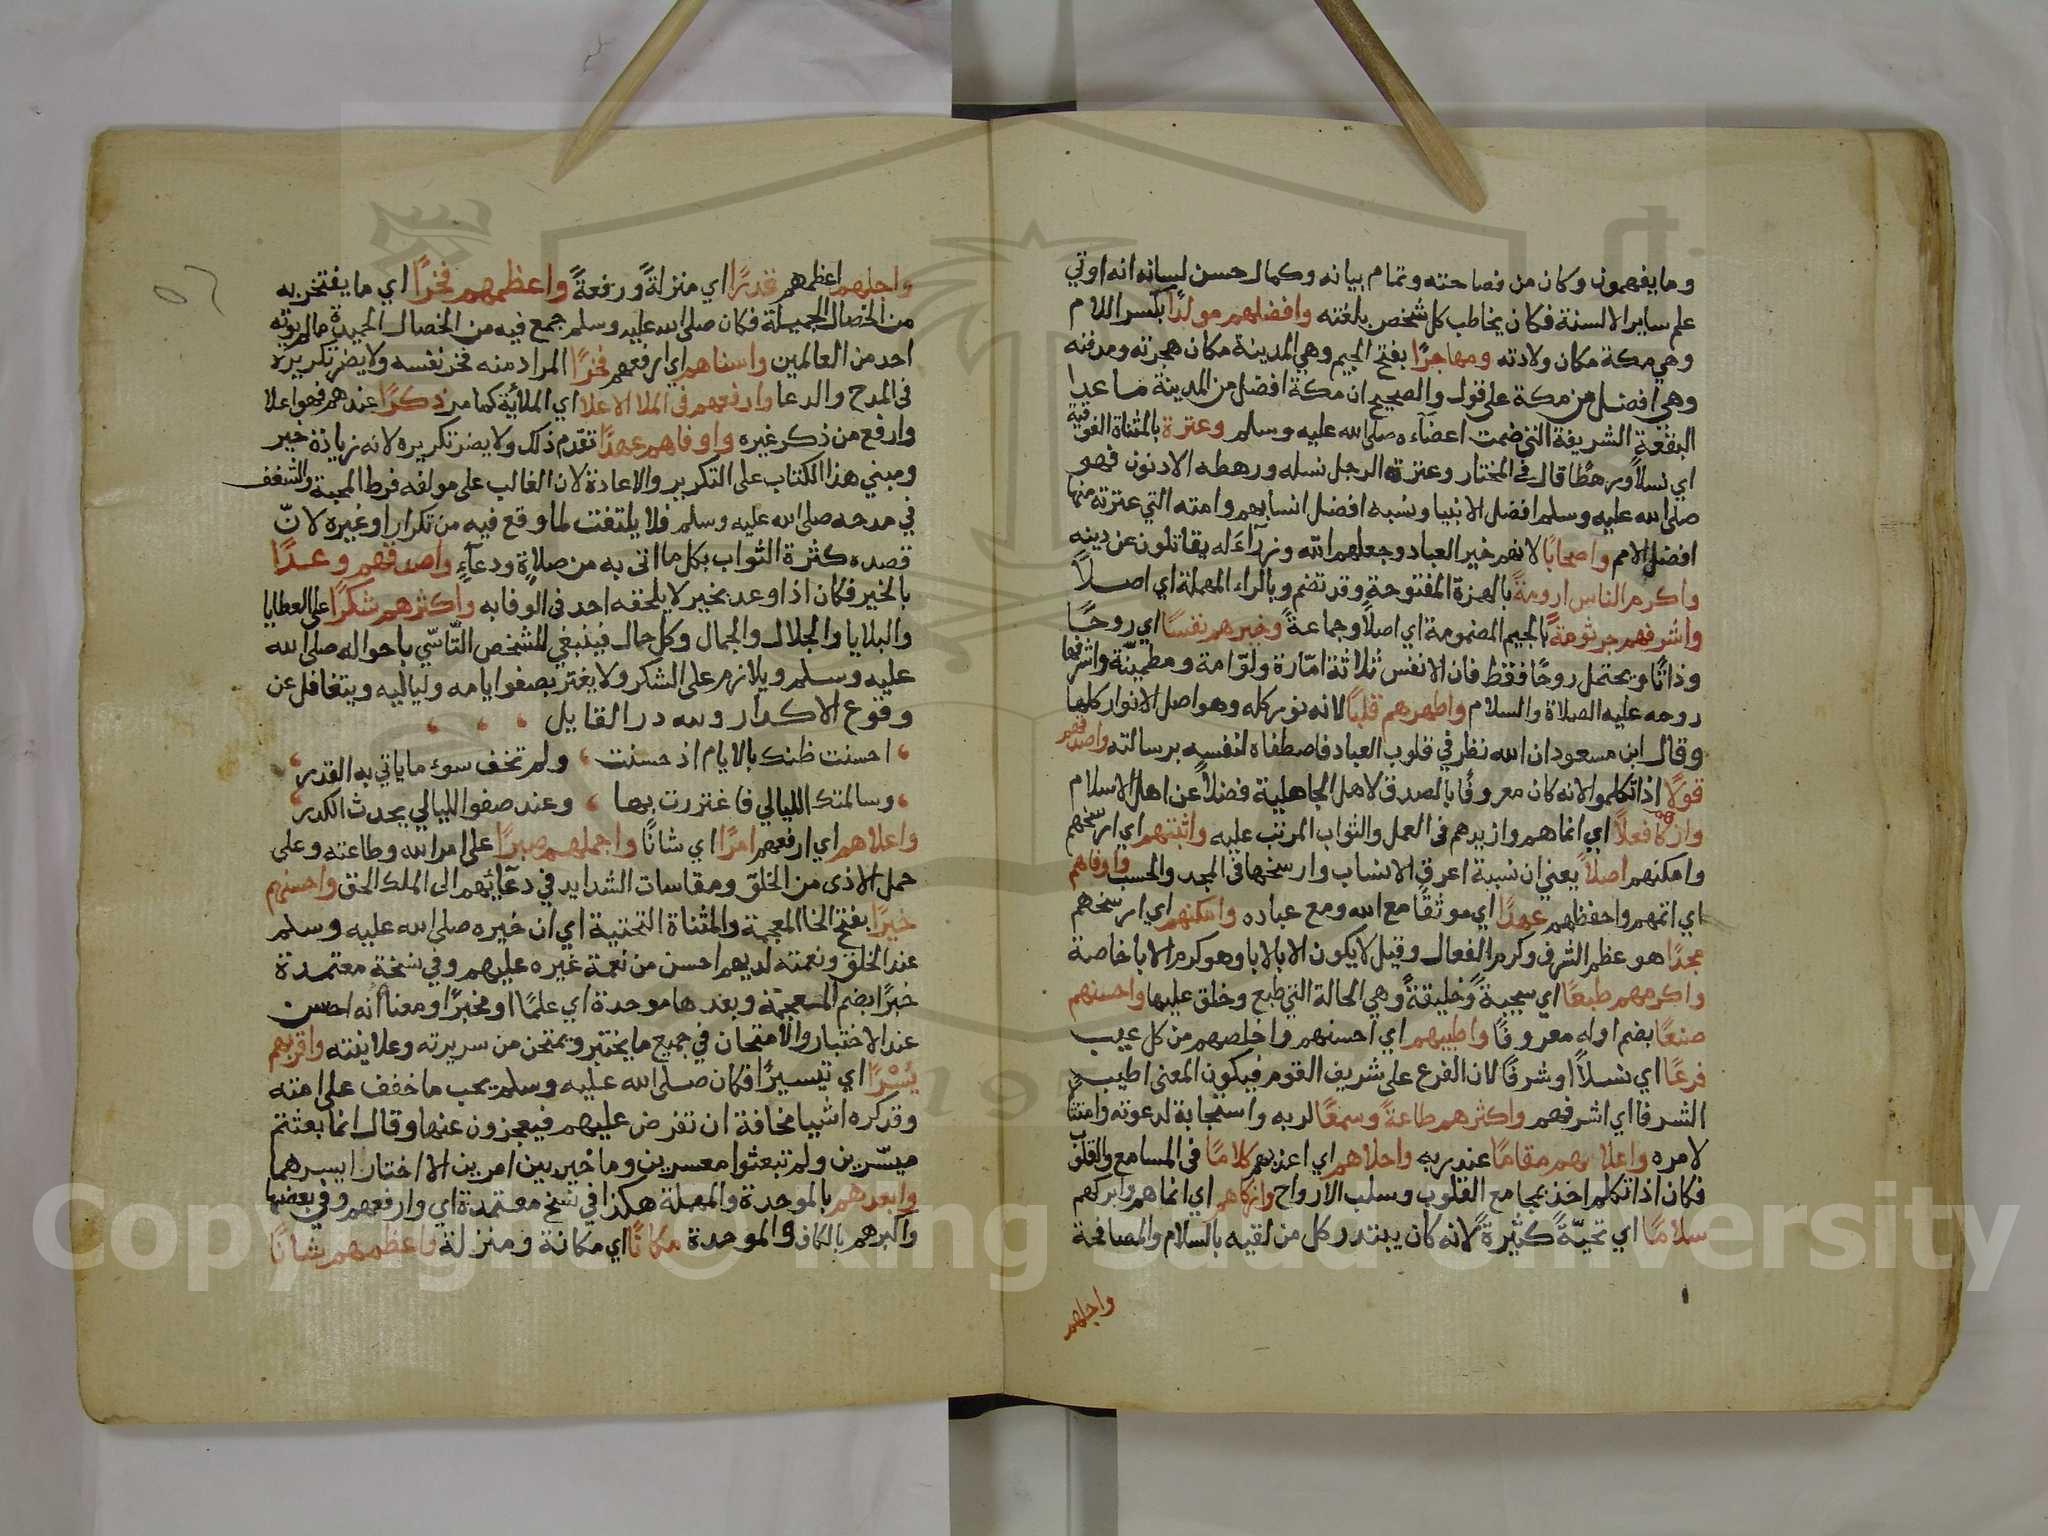 وما يفهمون وكان من فصاحته وتمام بيانه وكمال حسن لسانه انه اوتي
علم ساير الالسنة فكان يخاطب كل شخص بلغته وافضلهم مولدًا بكسر اللام
وهي مكة مكان ولادته ومهاجرًا بفتح الجيم وهي المدينة مكان هجرته ومدفنه
وهي افضل من مكة على قول والصحيح ان مكة افضل من المدينة ما عدا
البقعة الشريفة التي ضمت اعضآءه صلى الله عليه وسلم وعترة بالمثناة الفوقية
اي نسلاً ورهطًا قال في المختار وعترة الرجل نسله ورهطه الادنون فهو
صلى الله عليه وسلم افضل الانبيا ونسبه افضل انسابهم وامته التي عترته منها
افضل الامم واصحابًا لانهم خير العباد وجعلهم الله وزرآءَ له يقاتلون عن دينه
واكرم الناس ارومةً بالهمزة المفتوحة وقد تضم وبالراء المهملة اي اصلاً
واشرفهم جرثومةً بالجيم المضمومة اي اصلاً وجماعةً وخيرهم نفسًا اي روحًا
وذاتًا ويحتمل روحًا فقط فان الانفس ثلاثة امّارة ولوّامة ومطمئنّة واشرفها
روحه عليه الصلاة والسلام واطهرهم قلبًا لانه نور كله وهو اصل الانوار كلها
وقال ابن مسعود ان الله نظر في قلوب العباد فاصطفاه لنفسه برسالته واصدقهم
قولًا اذا تكلم والانه كان معروفًا بالصدق لاهل الجاهلية فضلاً عن اهل الاسلام
وازكاهم فعلاً اي انماهم وازيدهم في العمل والثواب المرتب عليه واثبتهم اي ارسخهم
وامكنهم اصلاً يعني ان نسبة اعرق الانساب وارسخها في المجد والحسب واوفاهم
اي اتمهم واحفظهم عهدًا اي موثقًا مع الله ومع عباده وامكنهم اي ارسخهم
مجدًا هو عظم الشرف وكرم الفعال وقيل لا يكون الا بالابا وهو كرم الابا خاصة
واكرمهم طبعًا اي سجيةً وخليقةً وهي الحالة التي طبع وخلق عليها واحسنهم
صنعًا بضم اوله معروفًا واطيبهم اي احسنهم واخلصهم من كل عيب
فرعًا اي نسلاً او شرفًا لان الفرع على شريف القوم فيكون المعنى اطيب
الشرفا اي اشرفهم واكثرهم طاعةً وسمعًا لربه واستجابة لدعوته وامتثالًا
لامره واعلاهم مقامًا عند ربه واحلاهم اي اعذبهم كلامًا في المسامع والقلوب
فكان اذا تكلم اخذ بمجامع القلوب وسلب الارواح وازكاهم اي انماهم وابركهم
سلامًا اي تحيّةً كثيرةً لانه كان يبتدر كل من لقيه بالسلام والمصافحة
واجلهم
واجلهم اعظمهم قدرًا اي منزلةً ورفعةً واعظمهم فخرًا اي ما يفتخر به
من الخصال الجميلة فكان صلى الله عليه وسلم جمع فيه من الخصال الحميدة ما لم يؤته
احد من العالمين واسناهم اي ارفعهم فخرًا المراد منه فخر نفسه ولا يضر تكريره
في المدح والدعا وارفعهم في الملا الاعلا اي الملائة كما مر ذكرًا عندهم فهو اعلا
وارفع من ذكر غيره واوفاهم عهدًا تقدم ذلك ولا يضر تكريره لانه زيادة خير
ومبني هذا الكتاب على التكرير والاعادة لان الغالب على مولفه فرط المحبة والشغف
في مدحه صلى الله عليه وسلم فلا يلتفت لما وقع فيه من تكرار او غيره لانّ
قصده كثرة الثواب بكل ما اتى به من صلاةٍ ودعآءٍ واصدقهم وعدًا
بالخير فكان اذا وعد بخير لا يلحقه احد في الوفا به واكثرهم شكرًا على العطايا
والبلايا والجلال والجمال وكل حال فينبغي للشخص التّاسّي باحواله صلى الله
عليه وسلم ويلازم على الشكر ولا يغتر بصفو ايامه ولياليه ويتغافل عن
وقوع الاكدار ولله در القايل
احسنت ظنك بالايام اذ حسنت ولم تخف سوء ما ياتي به القدر
وسالمتك الليالي فاغتررت بها وعند صفو الليالي يحدث الكدر
واعلاهم اي ارفعهم امرًا اي شانًا واجملهم صبرًا على امر الله وطاعته وعلى
حمل الاذى من الخلق ومقاسات الشدايد في دعآئهم الى الملك الحق واحسنهم
خيرًا بفتح الخا المعجمة والمثناة التحتية اي ان خيره صلى الله عليه وسلم
عند الخلق ونعمته لديهم احسن من نعمة غيره عليهم وفي نسخة معتمدة
خبرًا بضم المعجمة وبعدها موحدة اي علمًا او مخبرًا ومعناه انه احسن
عند الاختبار والامتحان في جميع ما يختبر ويمتحن من سريرته وعلانيته واقربهم
يُسْرًا اي تيسيرًا فكان صلى الله عليه وسلم يحب ما خفف على امته
وقد كره اشيا مخافة ان تفرض عليهم فيعجزون عنها وقال انما بعثتم
ميسّرين ولم تبعثوا معسرين وما خير بين امرين الا اختار ايسرهما
وابعدهم بالموحدة والمهملة هكذا في نسخ معتمدة اي وارفعهم وفي بعضها
واكبرهم بالكاف والموحدة مكانًا اي مكانة ومنزلة واعظمهم شانًا
Copyright © King Saud University